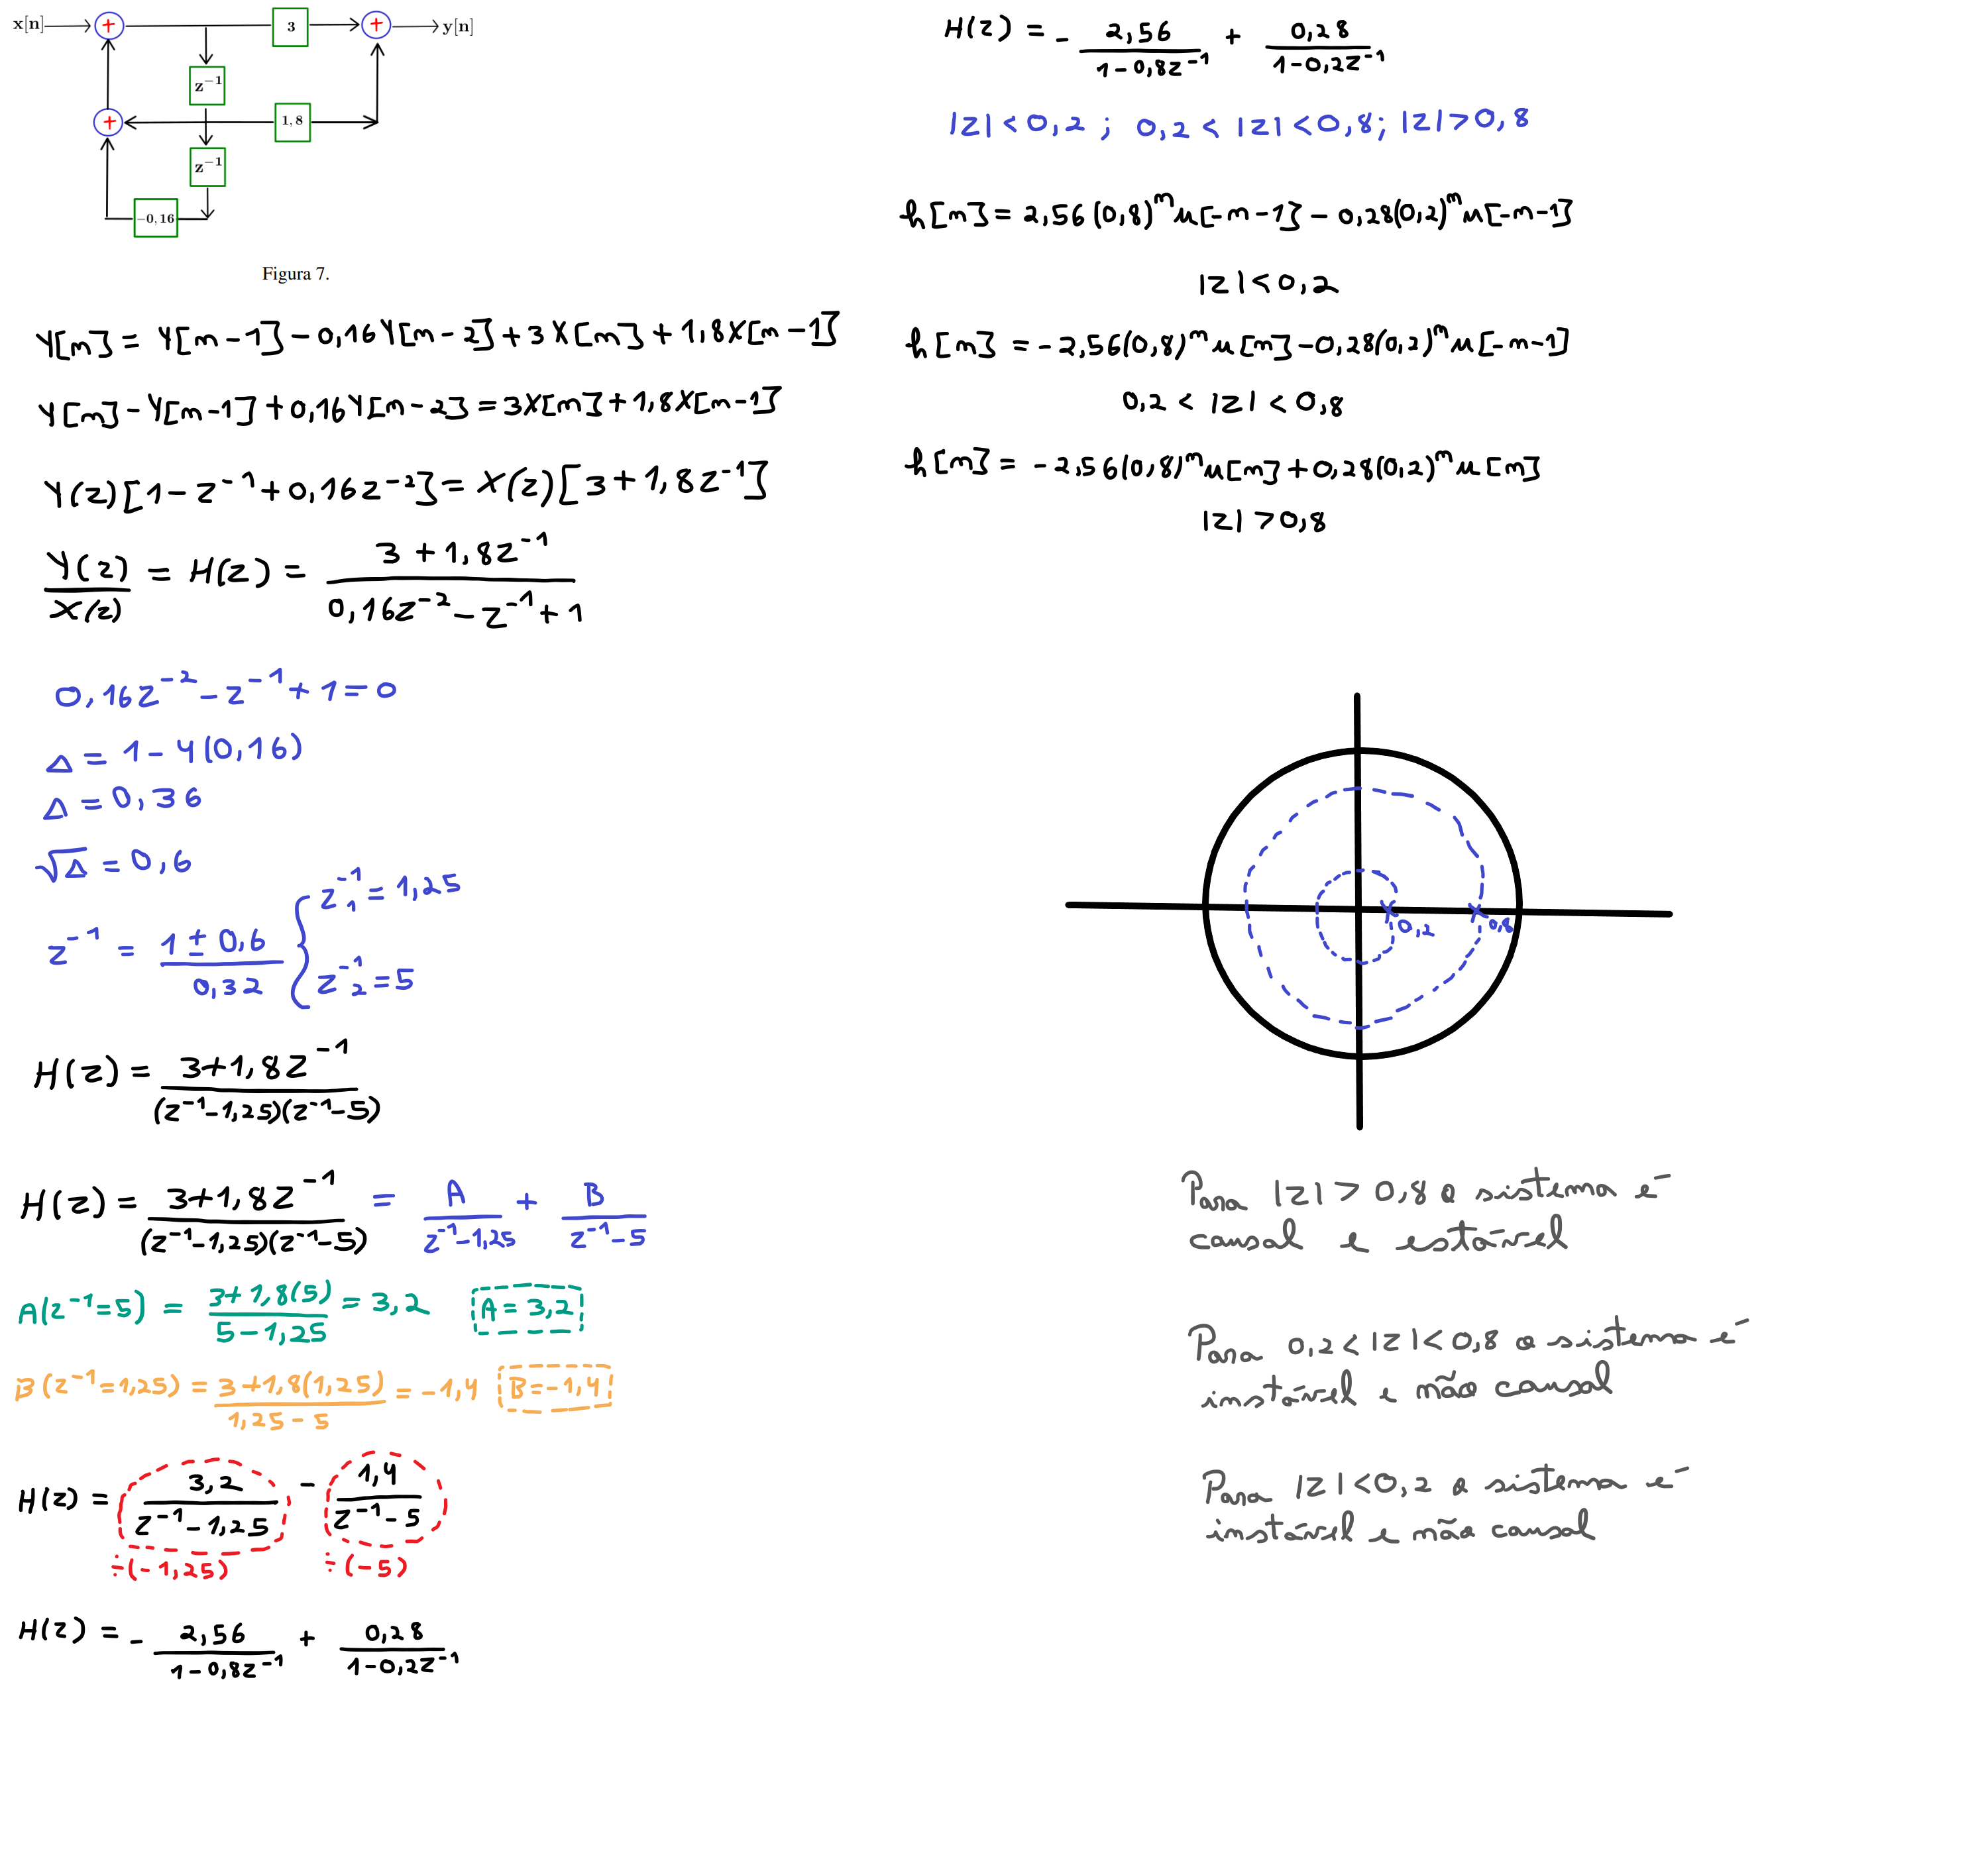 x[n] + 3 + y[n]
z⁻¹
+ 1,8
z⁻¹
-0,16
Figura 7.
Y[n] = Y[n-1] - 0,16Y[n-2] + 3X[n] + 1,8X[n-1]
Y[n] - Y[n-1] + 0,16Y[n-2] = 3X[n] + 1,8X[n-1]
Y(z)[1 - z⁻¹ + 0,16z⁻²] = X(z)[3 + 1,8z⁻¹]
Y(z)/X(z) = H(z) = (3 + 1,8z⁻¹)/(0,16z⁻² - z⁻¹ + 1)
0,16z⁻² - z⁻¹ + 1 = 0
Δ = 1 - 4(0,16)
Δ = 0,36
√Δ = 0,6
z⁻¹ = (1 ± 0,6)/0,32 { z₁⁻¹ = 1,25
z₂⁻¹ = 5
H(z) = (3+1,8z⁻¹)/((z⁻¹-1,25)(z⁻¹-5))
H(z) = (3+1,8z⁻¹)/((z⁻¹-1,25)(z⁻¹-5)) = A/(z⁻¹-1,25) + B/(z⁻¹-5)
A(z⁻¹=5) = (3+1,8(5))/(5-1,25) = 3,2 A = 3,2
B(z⁻¹=1,25) = (3+1,8(1,25))/(1,25-5) = -1,4 B=-1,4
H(z) = 3,2/(z⁻¹-1,25) - 1,4/(z⁻¹-5)
÷(-1,25) ÷(-5)
H(z) = - 2,56/(1-0,8z⁻¹) + 0,28/(1-0,2z⁻¹)
H(z) = - 2,56/(1-0,8z⁻¹) + 0,28/(1-0,2z⁻¹)
|z|<0,2 ; 0,2<|z|<0,8; |z|>0,8
h[n] = 2,56(0,8)ⁿu[-n-1] - 0,28(0,2)ⁿu[-n-1]
|z|<0,2
h[n] = -2,56(0,8)ⁿu[n] - 0,28(0,2)ⁿu[-n-1]
0,2 < |z| < 0,8
h[n] = -2,56(0,8)ⁿu[n] + 0,28(0,2)ⁿu[n]
|z| > 0,8
0,2 0,8
Para |z| > 0,8 o sistema é
causal e estável
Para 0,2<|z|<0,8 o sistema é
instável e não causal
Para |z|<0,2 o sistema é
instável e não causal